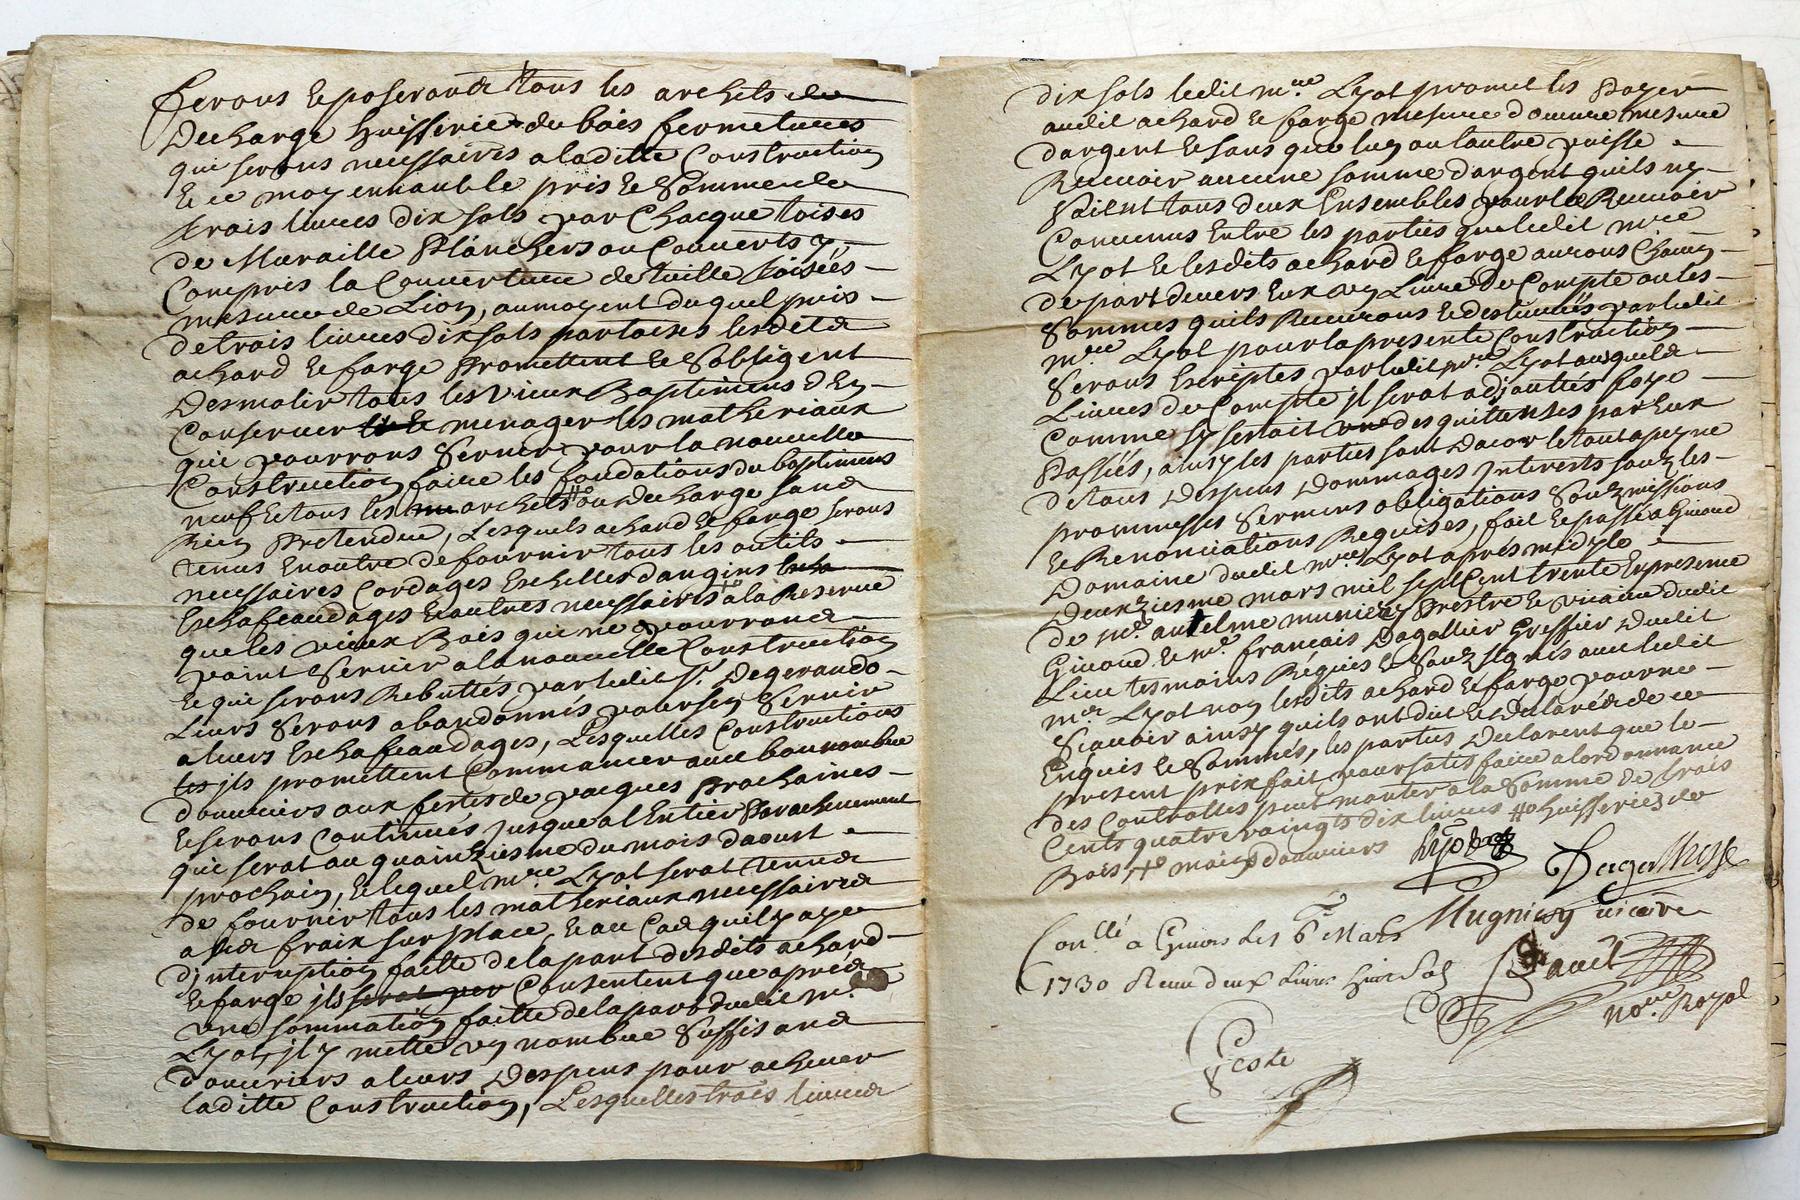 ferons Et poseronts tous les archets de
decharge huisserie du bois fermetures
qui serons nessaires a laditte Construction
Et ce moyennant le pris Et Somme de
trois livres dix sols par Chacque toises
de Muraille Planchers ou Couverts y
Compris la Couverture de tuille toisées
mesure de Lion, au moyent duquel pris
de trois livres dix sols par toises lesdits
achard Et farge Promettent Et Sobligent
Desmolir tous les Vieux Baptiments d En
Conserver Et menager les matheriaux
qui pourrons Servir pour la nouvelle
Construction faire les fondations du baptiments
neuf Et tous les archets ou decharge sans
Rien Pretendre, Lesquels achard Et farge serons
tenus En outre de fournir tous les outils
nessaires Cordages Eschelles dangins
Eschafeaudages Et autres nessaires a la Reserve
que les vieux Bois qui ne pourronts
point Servir a la nouvelle Construction
Et qui serons Rebuttés par ledit Sr. Degerando
Leurs Serons abandonnés pour sen Servir
a leurs Eschafeaudages, Lesquelles Constructions
ils promettent Commancer avec bon nombre
douvriers aux festes de pacques Prochaines
Et serons Continués jusque a l Entier Parachevement
qui serat au quainziesme du mois daoust
prochain, Et lequel mre Lyot serat tenus
de fournir tous les matheriaux nessaires
a ses fraix sur place, Et au Cas quil y aye
dinterruption faitte de la part desdits achard
Et farge ils Consentent que aprés
une sommation faitte de la part dudit mr.
Lyot, il y mette un nombre Suffisans
douvriers a leurs Despens pour achever
laditte Construction, Lesquelles trois livres
dix sols ledit mre Lyot promet les Payer
audit achard Et farge mesure douvre mesure
dargent Et sans que lun ou lautre puisse
Recevoir aucune somme dargent quils ny
Soient tous deux Ensembles pour le Recevoir
Convenus Entre les parties que ledit mre
Lyot Et lesdits achard Et farge aurons Chacun
de part devers Eux un Livre de Compte ou les
Sommes quils Recevrons Et deslivrés par ledit
mre Lyot pour la presente Construction
Serons Escriptes par ledit mre Lyot ausquels
Livres de Compte il serat adjouttés foye
Comme sy sertoit des quittenses par Eux
Passées, ainsy les parties sont Dacor Et tout a peyne
de tous Despens Dommages Interests soubz les
prommesses Sermens obligations Soubzmissions
Et Renonciations Requises, fait Et passé a Givord
Domaine dudit mre Lyot aprés midy le
Deuxziesme mars mil sept Cent trente En presence
de mre. antelme municy Prestre Et vicaire dudit
Givord Et mr. francois Dagallier Greffier Dudit
Lieu tesmoins Requis Et Soubz signés avec ledit
mre Lyot non lesdits achard Et farge pour ne
Scavoir ainsy quils ont dit Et declarés de ce
Enquis Et Sommés, les parties Declarent que le
present prix fait pour satisfaire a lordonnance
des Controlles peut monter a la Somme de trois
Cents quatre vaingts dix livres # huisseries de
Bois, # mais douvriers
Mugnier vicaire
Conllé a Givors le 6e Mars
1730 Reçu deux livres huit Sols
nore Royal